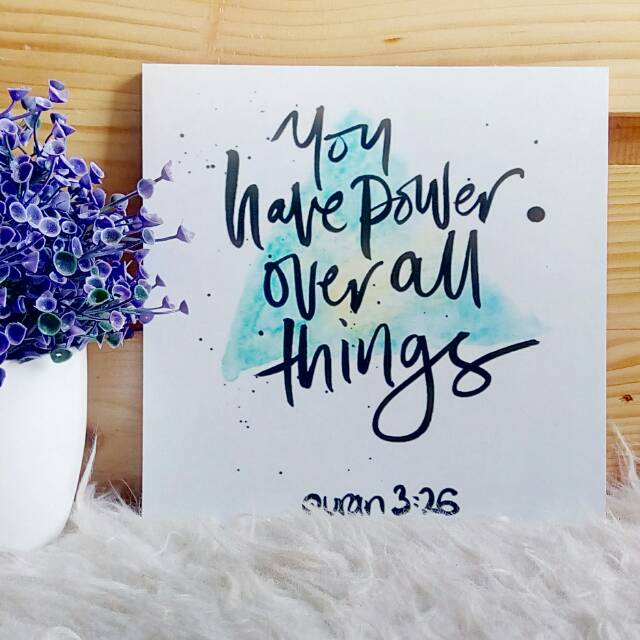 You
have power
over all
things
quran 3:26